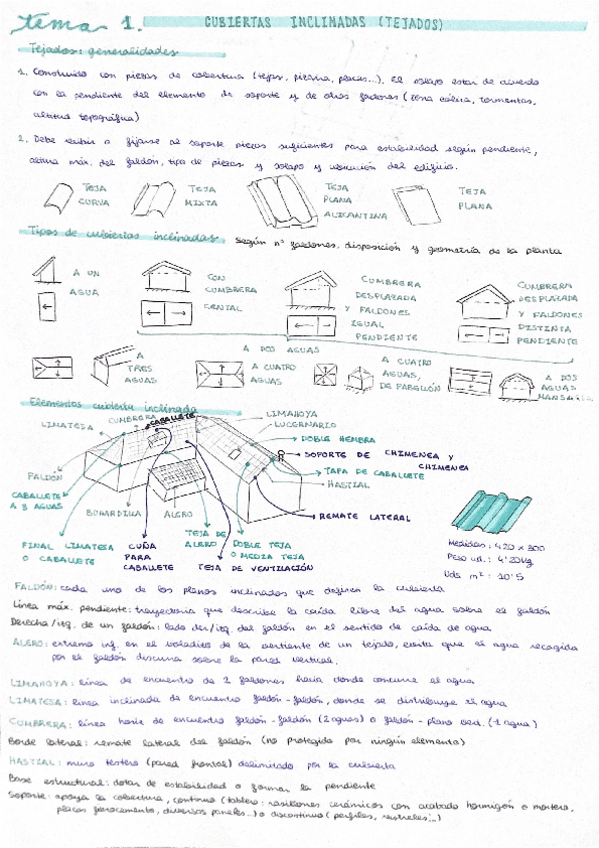 tema 1. CUBIERTAS INCLINADAS (TEJADOS)
Tejados: generalidades
1. Construido con piezas de cobertura (tejas, pizarra, placas...). El solapo estará de acuerdo
con la pendiente del elemento de soporte y de otros factores (zona eólica, tormentas,
altitud topográfica)
2. Debe recibir o fijarse al soporte piezas suficientes para estabilidad según pendiente,
altura máx. del faldón, tipo de piezas y solapo y ubicación del edificio.
TEJA CURVA
TEJA MIXTA
TEJA PLANA ALICANTINA
TEJA PLANA
Tipos de cubiertas inclinadas. Según nº faldones, disposición y geometría de la planta
A UN AGUA
CON CUMBRERA
CUMBRERA DESPLAZADA Y FALDONES IGUAL PENDIENTE
CUMBRERA DESPLAZADA Y FALDONES DISTINTA PENDIENTE
A DOS AGUAS
A TRES AGUAS
A CUATRO AGUAS
A CUATRO AGUAS, DE PABELLÓN
A DOS AGUAS
Elementos cubierta inclinada
LIMATESA
CUMBRERA
CABALLETE
LIMAHOYA
LUCERNARIO
DOBLE HEMBRA
SOPORTE DE CHIMENEA Y CHIMENEA
TAPA DE CABALLETE
HASTIAL
REMATE LATERAL
FALDÓN
CABALLETE A 3 AGUAS
BUHARDILLA
ALERO
FINAL LIMATESA O CABALLETE
CUÑA PARA CABALLETE
TEJA DE ALERO
DOBLE TEJA O MEDIA TEJA
TEJA DE VENTILACIÓN
Medidas: 420 x 300
Peso ud.: 4'20Kg
Uds m²: 10'5
FALDÓN: cada uno de los planos inclinados que definen la cubierta
Línea máx. pendiente: trayectoria que describe la caída libre del agua sobre el faldón
Derecha/izq. de un faldón: lado der/izq. del faldón en el sentido de caída de agua
ALERO: extremo inf. en el voladizo de la vertiente de un tejado, evita que el agua recogida
por el faldón discurra sobre la pared vertical.
LIMAHOYA: línea de encuentro de 2 faldones hacia donde concurre el agua
LIMATESA: línea inclinada de encuentro faldón-faldón, donde se distribuye el agua
CUMBRERA: línea horiz. de encuentro faldón-faldón (2 aguas) o faldón-plano vert. (1 agua)
Borde lateral: remate lateral del faldón (no protegido por ningún elemento)
HASTIAL: muro testero (pared frontal) delimitado por la cubierta
Base estructural: dotar de estabilidad o formar la pendiente
Soporte: apoya la cobertura, continuo (tablero: rasillones cerámicos con acabado hormigón o mortero,
placas diversos paneles...) o discontinuo (perfiles, rastreles...)